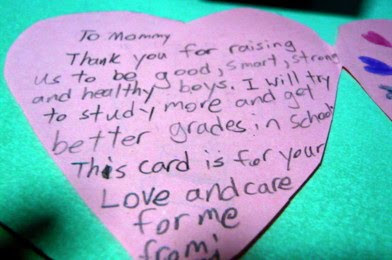 To Mommy
Thank you for raising
us to be good, smart, strong
and healthy boys. I will try
to study more and get
better grades in school
This card is for your
Love and care
for me
from: